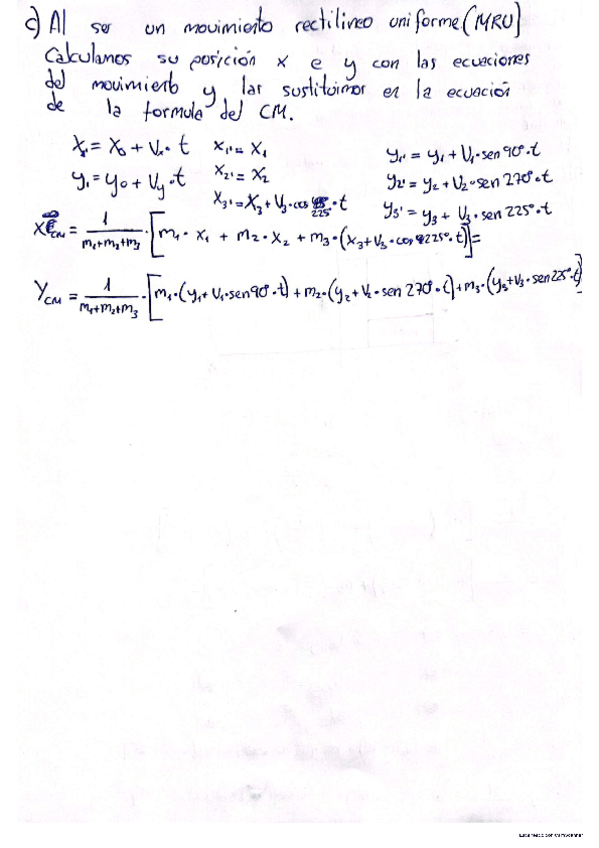 c) Al ser un movimiento rectilineo uniforme (MRU)
Calculamos su posición x e y con las ecuaciones
del movimiento y las sustituimos en la ecuación
de la formula del CM.
X₁' = X₀ + Vₓ · t    X₁' = X₁    y₁' = y₁ + V₁ · sen 90º · t
y₁' = y₀ + Vy · t    X₂' = X₂    y₂' = y₂ + V₂ · sen 270º · t
X₃' = X₃ + V₃ · cos 225º · t    y₃' = y₃ + V₃ · sen 225º · t
X CM = 1/(m₁+m₂+m₃) · [m₁ · X₁ + m₂ · X₂ + m₃ · (X₃ + V₃ · cos 225º · t)] =
Y CM = 1/(m₁+m₂+m₃) · [m₁ · (y₁ + V₁ · sen 90º · t) + m₂ · (y₂ + V₂ · sen 270º · t) + m₃ · (y₃ + V₃ · sen 225º · t)]